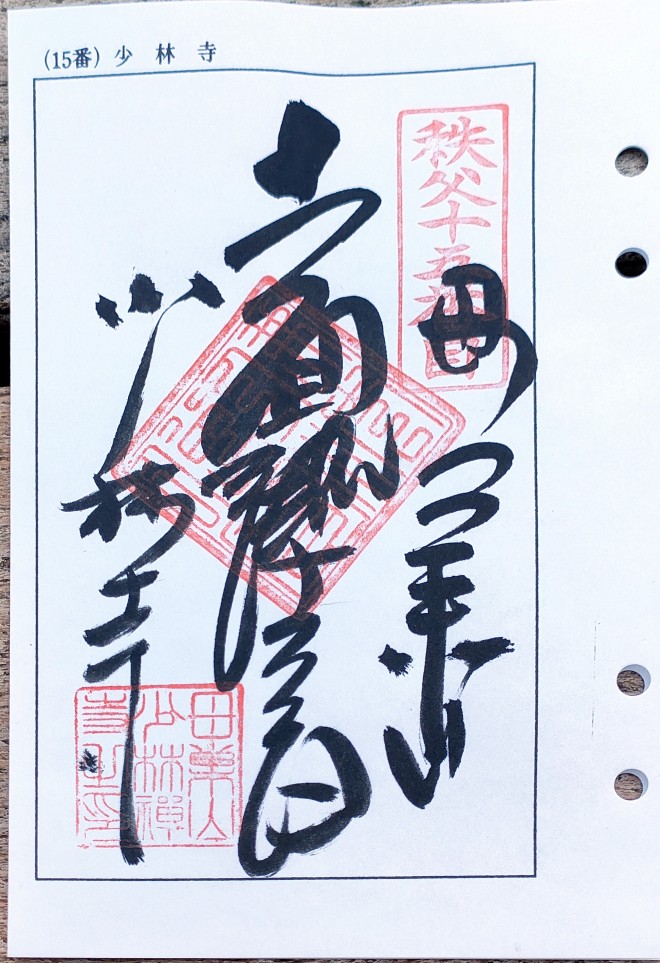 (15番) 少林寺
秩父十五番
母巣山
十一面観世音
少林寺
母巣山
少林禪
寺之印